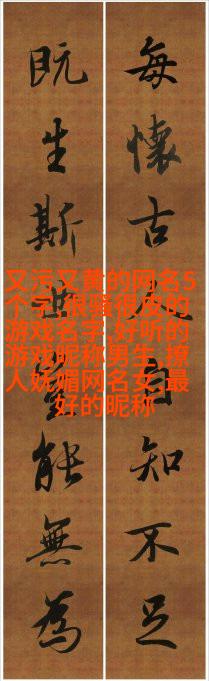 每懷古人自知不足
既生斯世能無為
又污又黄的网名5
个字,很骚很皮的
游戏名字,好听的
游戏昵称男生,撩
人妩媚网名女,最
好的昵称